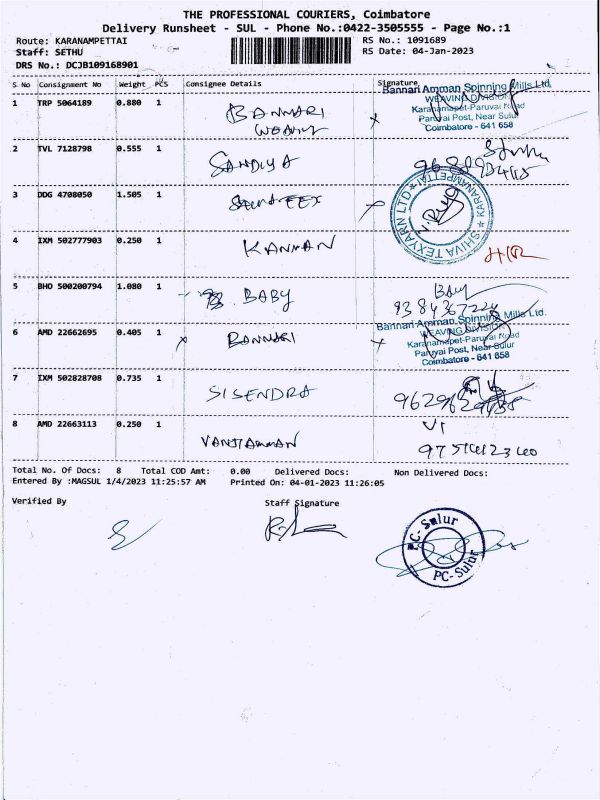 THE PROFESSIONAL COURIERS, Coimbatore
Delivery Runsheet - SUL - Phone No.:0422-3505555 - Page No.:1
Route: KARANAMPETTAI RS No.: 1091689
Staff: SETHU RS Date: 04-Jan-2023
DRS No.: DCJB109168901
S No Consignment No Weight PCS Consignee Details Signature
Bannari Amman Spinning Mills Ltd.
WEAVING DIVISION
1 TRP 5064189 0.880 1 BANNARI Karanampet-Paruvai Road
Paruvai Post, Near Sulur
Coimbatore - 641 658
2 TVL 7128798 0.555 1 SANDIYA
3 DDG 4708050 1.505 1
SHIVA TEXYARN LTD KARANAMPETTAI
4 IXM 502777903 0.250 1 KANNAN
5 BHD 500200794 1.080 1 BABY
9384367224
Bannari Amman Spinning Mills Ltd.
WEAVING DIVISION
6 AMD 22662695 0.405 1 BANNARI Karanampet-Paruvai Road
Paruvai Post, Near Sulur
Coimbatore - 641 658
7 IXM 502828708 0.735 1 SISENDRA
8 AMD 22663113 0.250 1 VANJIAMMAN
Total No. Of Docs: 8 Total COD Amt: 0.00 Delivered Docs: Non Delivered Docs:
Entered By :MAGSUL 1/4/2023 11:25:57 AM Printed On: 04-01-2023 11:26:05
Verified By Staff Signature
PC- Sulur
PC-Sulur